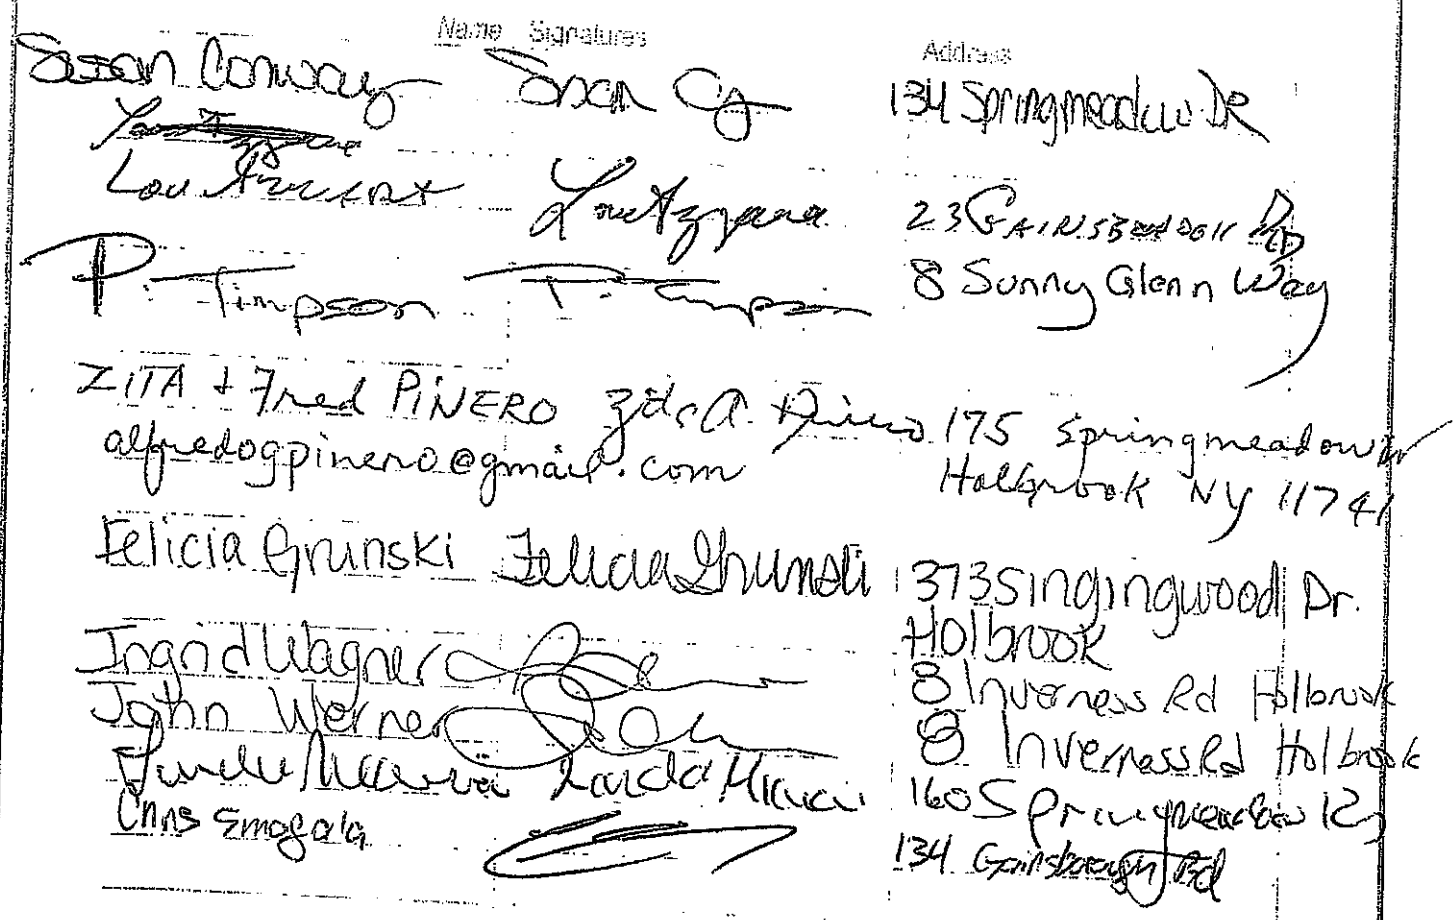 Name Signatures Address
Susan Conway Susan Cy 134 Springmeadow DR
Lou 23 GAINSBOROUGH RD
P. Timpson P. Timpson 8 Sunny Glenn Way
ZITA + Fred PiNERO Zita A. Pinero 175 Springmeadow Dr
alfredogpinero@gmail.com Holbrook NY 11741
Felicia Grunski Felicia Grunski 373 Singingwood Dr.
Holbrook
Ingrid Wagner 8 Inverness Rd Holbrook
John Werner 8 Inverness Rd Holbrook
Linda 160 Springmeadow
Chris Smogala 134 Gainsborough Rd